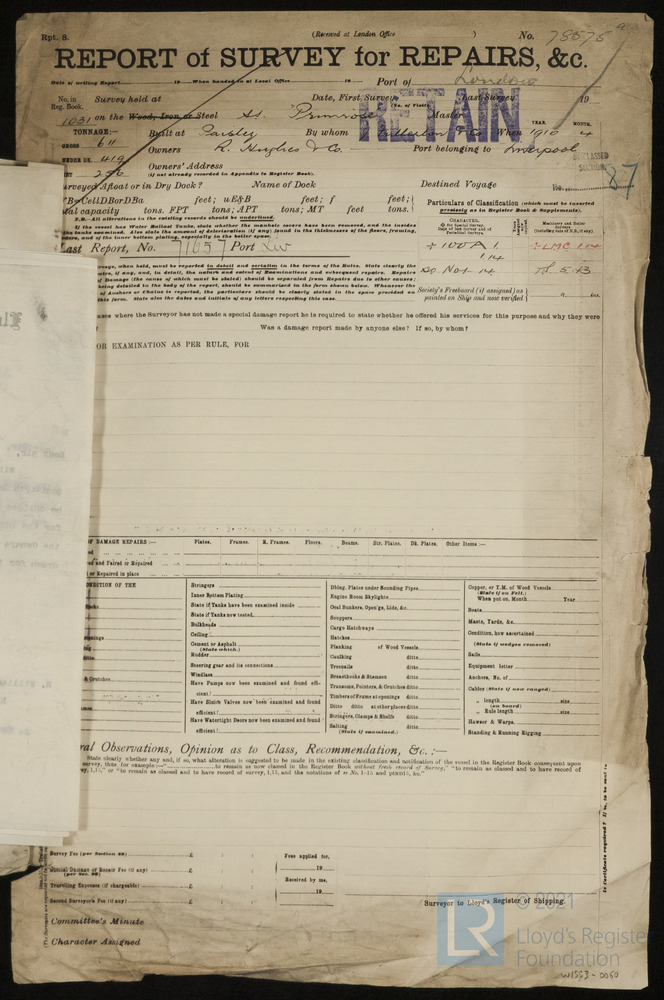 Rpt. 8.
(Received at London Office
)
No. 78575
REPORT of SURVEY for REPAIRS, &c.
Date of writing Report 19 When handed in at Local Office 19 Port of London
No. in Reg. Book.
Survey held at
Date, First Survey
Last Survey
19
RETAIN
(No. of Visits
1031 on the Wood, Iron or Steel Primrose
Master
YEAR. MONTH.
TONNAGE:—
Built at Paisley
By whom Fullerton & Co
When 1910 4
GROSS 611
Owners R. Hughes & Co.
Port belonging to Liverpool
UNDER DK. 419
Owners' Address
(if not already recorded in Appendix to Register Book).
NET 256
87
Surveyed Afloat or in Dry Dock?
Name of Dock
Destined Voyage
CellDBorDBa feet; uE&B feet; f feet;
total capacity tons. FPT tons; APT tons; MT feet tons.
Particulars of Classification (which must be inserted precisely as in Register Book & Supplements).
N.B.—All alterations in the existing records should be underlined.
If the vessel has Water Ballast Tanks, state whether the manhole covers have been removed, and the insides
the tanks examined. Also state the amount of deterioration (if any) found in the thicknesses of the floors, framing,
and of the inner bottom plating, especially in the boiler space.
CHARACTER.
Last Report, No. 71657 Port
+ 100 A 1.
+ LMC 1.14
1.14
No 14
5.43
Society's Freeboard (if assigned) as painted on Ship and now verified
when held, must be reported in detail and seriatim in the terms of the Rules. State clearly the
if any, and, in detail, the nature and extent of Examinations and subsequent repairs. Repairs
of Damage (the cause of which must be stated) should be separated from Repairs due to other causes;
being detailed in the body of the report, should be summarized in the form shown below. Whenever the
of Anchors or Chains is reported, the particulars should be clearly stated in the space provided on
this form. State also the dates and initials of any letters respecting this case.
where the Surveyor has not made a special damage report he is required to state whether he offered his services for this purpose and why they were
Was a damage report made by anyone else? If so, by whom?
OR EXAMINATION AS PER RULE, FOR
OF DAMAGE REPAIRS:— Plates. Frames. R. Frames. Floors. Beams. Str. Plates. Dk. Plates. Other Items:—
and Faired or Repaired
or Repaired in place
CONDITION OF THE
Stringers
Inner Bottom Plating
State if Tanks have been examined inside
State if Tanks now tested
Bulkheads
Ceiling
Cement or Asphalt
(State which.)
Rudder
Steering gear and its connections
Windlass
Have Pumps now been examined and found efficient?
Have Sluice Valves now been examined and found efficient?
Have Watertight Doors now been examined and found efficient?
Dblng. Plates under Sounding Pipes
Engine Room Skylights
Coal Bunkers, Open'gs, Lids, &c.
Scuppers
Cargo Hatchways
Hatches
Planking of Wood Vessels
Caulking ditto
Treenails ditto
Breasthooks & Stemson ditto
Transoms, Pointers, & Crutches ditto
Timbers of Frame at openings ditto
Ditto ditto at other places ditto
Stringers, Clamps & Shelfs ditto
Salting ditto
(State if examined.)
Copper, or Y.M. of Wood Vessels
(State if on Felt.)
When put on, Month Year
Boats
Masts, Yards, &c.
Condition, how ascertained
(State if wedges removed)
Sails
Equipment letter
Anchors, No. of
Cables (State if now ranged)
„ length size
(on board)
„ Rule length size
Hawser & Warps
Standing & Running Rigging
Observations, Opinion as to Class, Recommendation, &c.:—
State clearly whether any and, if so, what alteration is suggested to be made in the existing classification and notification of the vessel in the Register Book consequent upon
survey, thus for example:—“ to remain as now classed in the Register Book without fresh record of Survey,” “to remain as classed and to have record of
” or “to remain as classed and to have record of survey, 1,15, and the notations of
Survey Fee (per Section 29) £
Special Damage or Repair Fee (if any) £
(per Sec. 29)
Travelling Expenses (if chargeable) £
Second Surveyor's Fee (if any) £
Fees applied for,
19
Received by me,
19
Surveyor to Lloyd's Register of Shipping.
Committee's Minute
Character Assigned
© 2021
LR
Lloyd's Register
Foundation
W1553-0050